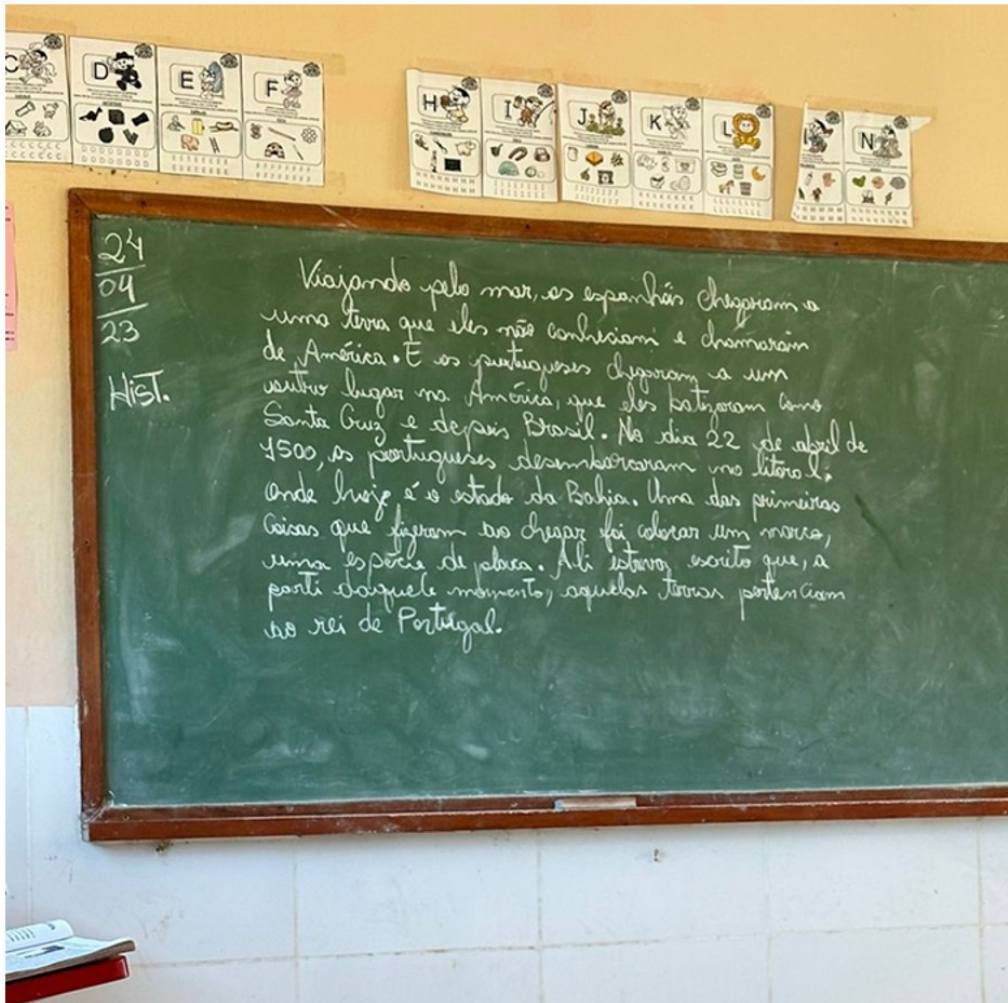 C
D
E
F
H
I
J
K
L
N
24
04
23
HIST.
Viajando pelo mar, os espanhóis chegaram a
uma terra que eles não conheciam e chamaram
de América. E os portugueses chegaram a um
outro lugar na América, que eles batizaram como
Santa Cruz e depois Brasil. No dia 22 de abril de
1500, os portugueses desembarcaram no litoral,
onde hoje é o estado da Bahia. Uma das primeiras
coisas que fizeram ao chegar foi colocar um marco,
uma espécie de placa. Ali estava escrito que, a
parti daquele momento, aquelas terras pertenciam
ao rei de Portugal.